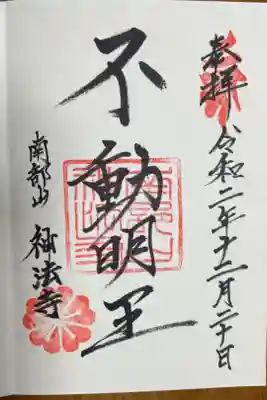 奉拝 令和二年十二月二十日
不動明王
南部山 法寺